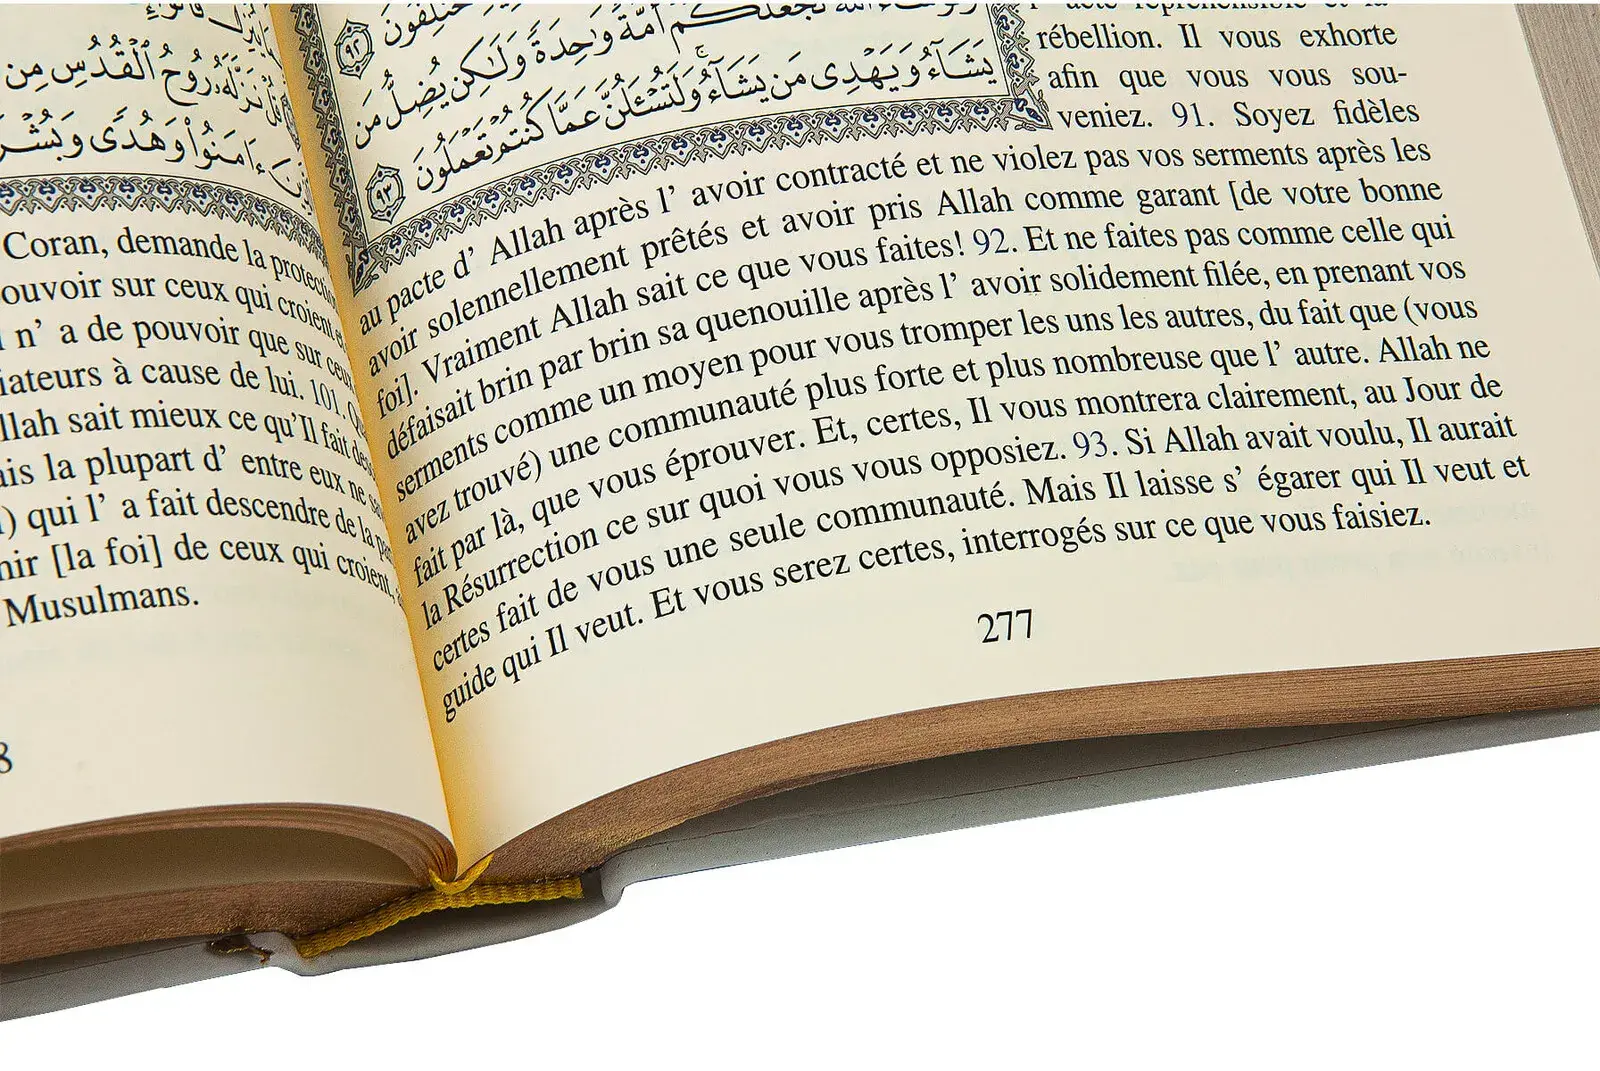 فَأْ نَزَّلَهُ رُوحُ ٱلْقُدُسِ مِن
ءَامَنُوا۟ وَهُدًى وَبُشْرَ
Coran, demande la protection
ouvoir sur ceux qui croient e
n’ a de pouvoir que sur ceux
iateurs à cause de lui. 101.
llah sait mieux ce qu’Il fait des
ais la plupart d’ entre eux ne
) qui l’ a fait descendre de la par
nir [la foi] de ceux qui croient,
Musulmans.
8
تَخْتَلِفُونَ ٩٢
ٱللَّهُ لَجَعَلَكُمْ أُمَّةً وَٰحِدَةً وَلَٰكِن يُضِلُّ مَن
يَشَآءُ وَيَهْدِى مَن يَشَآءُ ۚ وَلَتُسْـَٔلُنَّ عَمَّا كُنتُمْ تَعْمَلُونَ ٩٣
l’ acte répréhensible et la
rébellion. Il vous exhorte
afin que vous vous sou-
veniez. 91. Soyez fidèles
au pacte d’ Allah après l’ avoir contracté et ne violez pas vos serments après les
avoir solennellement prêtés et avoir pris Allah comme garant [de votre bonne
foi]. Vraiment Allah sait ce que vous faites! 92. Et ne faites pas comme celle qui
défaisait brin par brin sa quenouille après l’ avoir solidement filée, en prenant vos
serments comme un moyen pour vous tromper les uns les autres, du fait que (vous
avez trouvé) une communauté plus forte et plus nombreuse que l’ autre. Allah ne
fait par là, que vous éprouver. Et, certes, Il vous montrera clairement, au Jour de
la Résurrection ce sur quoi vous vous opposiez. 93. Si Allah avait voulu, Il aurait
certes fait de vous une seule communauté. Mais Il laisse s’ égarer qui Il veut et
guide qui Il veut. Et vous serez certes, interrogés sur ce que vous faisiez.
277